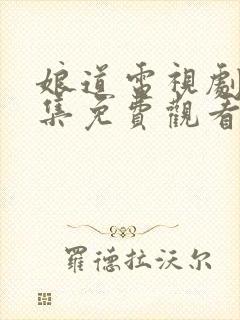 娘道電視劇
集免費觀看
羅德拉沃尔